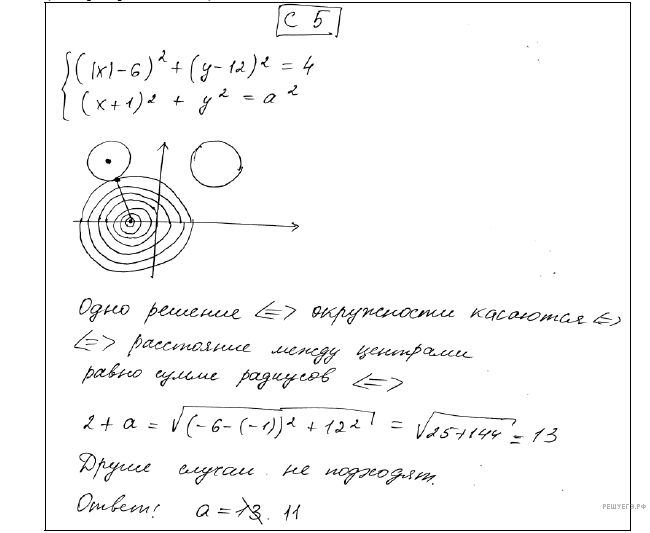 С 5
(|x|-6)² + (y-12)² = 4
(x+1)² + y² = a²
Одно решение <=> окружности касаются <=>
<=> расстояние между центрами
равно сумме радиусов <=>
2 + a = √((-6-(-1))² + 12²) = √(25+144) = 13
Другие случаи не подходят.
Ответ: a = 13. 11
РЕШУЕГЭ.РФ